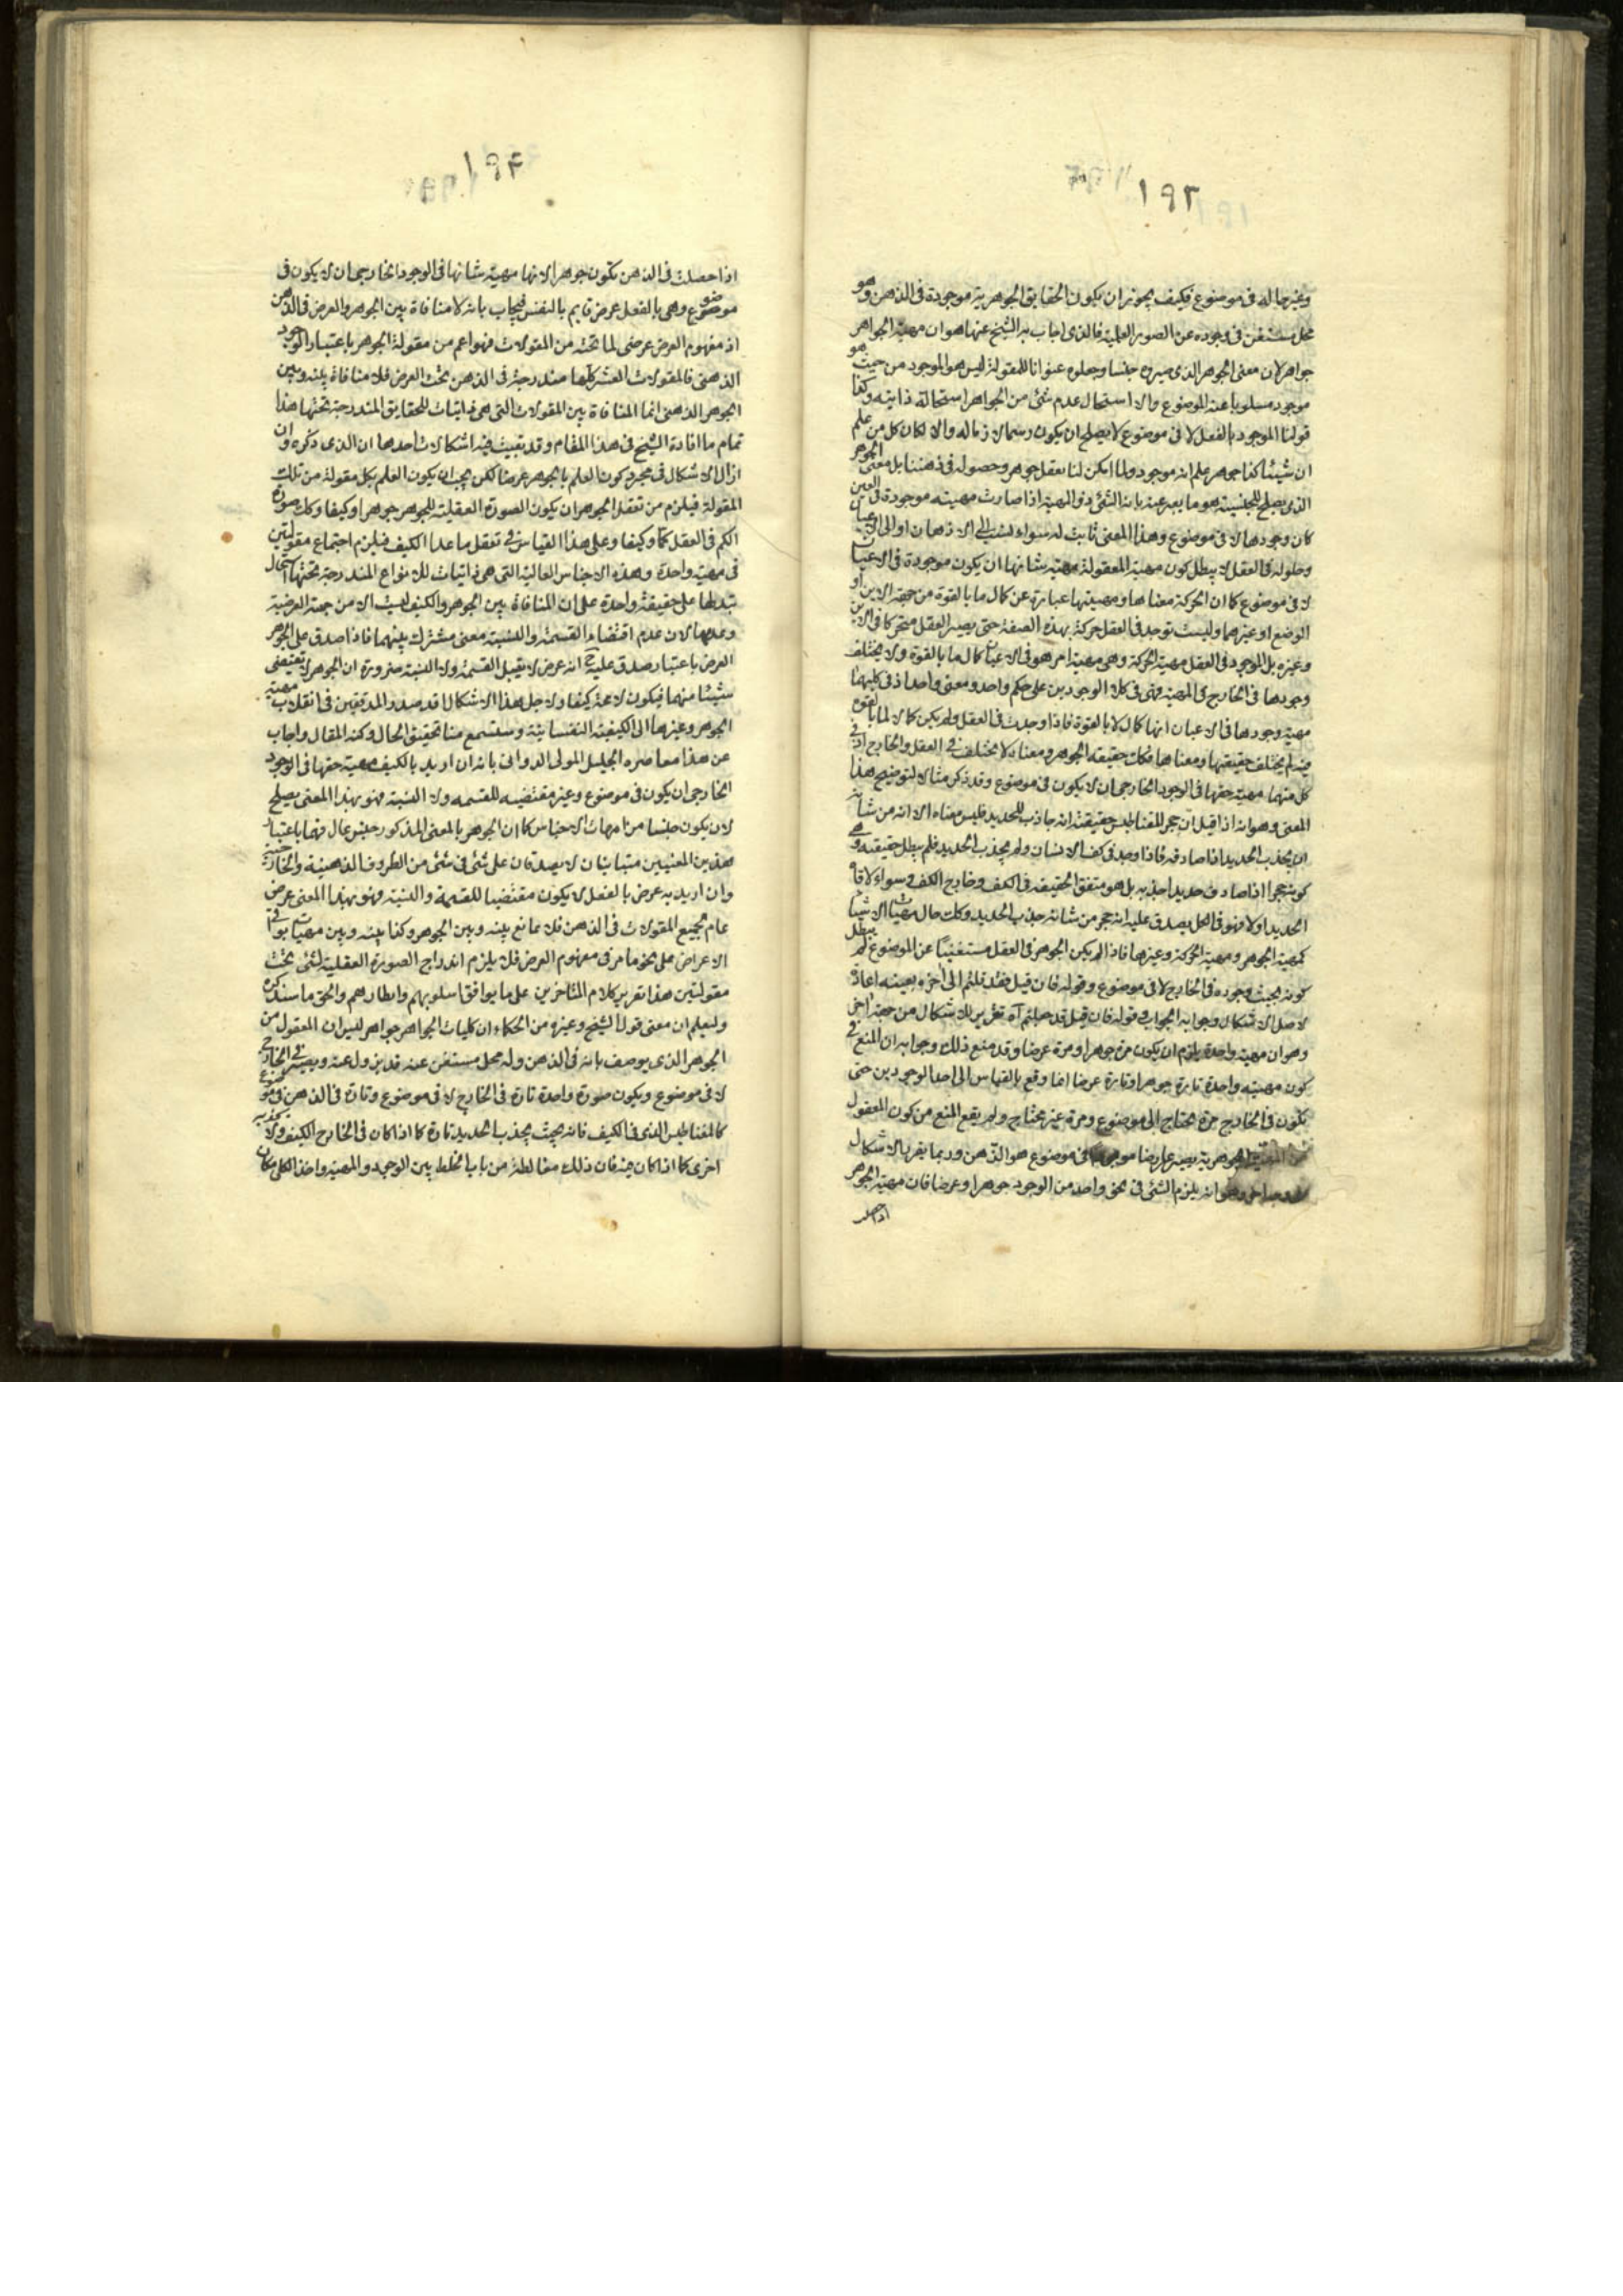 ١٩٣
وغير حالة فى موضوع فكيف يجوز ان يكون الحقايق الجوهرية موجودة فى الذهن وهو
محل مستغن فى وجوده عن الصور العلمية فالذى اجاب به الشيخ عنها هو ان مهية الجواهر
جواهر لان معنى الجوهر الذى صيروه جنسا وجعلوه عنوانا للمقولة ليس هو الموجود من حيث هو
موجود مسلوبا عنه الموضوع والا استحال عدم شئ من الجواهر استحالة ذاتية وكذا
قولنا الموجود بالفعل لا فى موضوع لا يصلح ان يكون رسما لازما له والا لكان كل من علم
ان شيئا كذا جوهر علم انه موجود ولما امكن لنا تعقل جوهر وحصوله فى ذهننا بل معنى الجوهر
الذى يصلح للجنسية هو ما يعبر عنه بانه الشئ ذو المهية اذا صارت مهيته موجودة فى العين
كان وجودها لا فى موضوع وهذا المعنى ثابت له سواء نسب الى الاذهان او الى الاعيان
وحلوله فى العقل لا يبطل كون مهية المعقولة مهية شانها ان يكون موجودة فى الاعيان
لا فى موضوع كما ان الحركة معناها ومهيتها عبارة عن كمال ما بالقوة من جهة الاين او
الوضع او غيرهما وليست توجد فى العقل حركة بهذه الصفة حتى يصير العقل متحركا فى الاين
وغيره بل الموجود فى العقل مهية الحركة وهى مهية امر هو فى الاعيان كمال ما بالقوة ولا يختلف
وجودها فى الخارج فى المهية فهى فى كلا الوجودين على حكم واحد ومعنى واحد اذ فى كليهما
مهية وجودها فى الاعيان انها كمال لا بالقوة فاذا وجدت فى العقل ولم يكن كمالا لما بالقوة
فيه لم يختلف حقيقتها ومعناها فكك حقيقة الجوهر ومعناه لا يختلف فى العقل والخارج اذ فى
كل منهما مهية حقها فى الوجود الخارجى ان لا يكون فى موضوع وقد ذكر مثالا لتوضيح هذا
المعنى وهو انه اذا قيل ان حجر المقناطيس حقيقته انه جاذب للحديد فليس معناه الا انه من شانه
ان يجذب الحديد اذا صادفه فاذا وجد فى كف الانسان ولم يجذب الحديد فلم يبطل حقيقته وهى
كونه حجرا اذا صادف حديدا جذبه بل هو متفق الحقيقة فى الكف وخارج الكف وسواء لاقاه
الحديد او لا فهو فى الكل يصدق عليه انه حجر من شانه جذب الحديد وكك حال مهيات الاشياء
كمهية الجوهر ومهية الحركة وغيرها فاذا لم يكن الجوهر فى العقل مستغنيا عن الموضوع لم يبطل
كونه بحيث وجوده فى الخارج لا فى موضوع وقوله فان قيل فقد قلتم الى اخره بعينه اعادة
لاصل الاشكال وجوابه الجواب وقوله فان قيل قد جعلتم آه تقرير للاشكال من جهة اخرى
وهو ان مهية واحدة يلزم ان يكون مرة جوهرا ومرة عرضا وقد منع ذلك وجوابه ان المنع فى
كون مهية واحدة تارة جوهرا وتارة عرضا انما وقع بالقياس الى احد الوجودين حتى
تكون فى الخارج مرة يحتاج الى موضوع ومرة غير محتاج ولم يقع المنع من كون المعقول
الجوهرية يصير عارضا فى موضوع هو الذهن وربما يقرر الاشكال
انه يلزم الشئ فى نحو واحد من الوجود جوهرا وعرضا فان مهية الجوهر
اذا حصلت
١٩٤
اذا حصلت فى الذهن تكون جوهرا لانها مهية شانها فى الوجود الخارجى ان لا يكون فى
موضوع وهى بالفعل عرض قايم بالنفس فيجاب بانه لا منافاة بين الجوهر والعرض فى الذهن
اذ مفهوم العرض عرضى لما تحته من المقولات فهو اعم من مقولة الجوهر باعتبار الوجود
الذهنى فالمقولات العشر كلها مندرجة فى الذهن تحت العرض فلا منافاة بينه وبين
الجوهر الذهنى انما المنافاة بين المقولات التى هى ذاتيات للحقايق المندرجة تحتها هذا
تمام ما افادة الشيخ فى هذا المقام وقد بقيت فيه اشكالات احدها ان الذى ذكره وان
ازال الاشكال فى مجرد كون العلم بالجوهر عرضا لكن يجب ان يكون العلم بكل مقولة من تلك
المقولة فيلزم من تعقل الجوهر ان يكون الصورة العقلية للجوهر جوهرا وكيفا وكك صورة
الكم فى العقل كما وكيفا وعلى هذا القياس فى تعقل ما عدا الكيف فيلزم اجتماع مقولتين
فى مهية واحدة وهذه الاجناس العالية التى هى ذاتيات للانواع المندرجة تحتها استحال
تبدلها على حقيقة واحدة على ان المنافاة بين الجوهر والكيف ليست الا من جهة العرضية
وعدمها لان عدم اقتضاء القسمة والنسبة معنى مشترك بينهما فاذا صدق على الجوهر
العرض باعتبار صدق عليه ح انه عرض لا يقبل القسمة ولا النسبة ضرورة ان الجوهر لا يقتضى
شيئا منهما فيكون لا محة كيفا ولاجل هذا الاشكال قد صدر المدققين فى انقلاب مهية
الجوهر وغيرها الى الكيفية النفسانية وستسمع منا تحقيق الحال وكنه المقال واجاب
عن هذا معاصره الجليل المولى الدوانى بانه ان اريد بالكيف مهية حقها فى الوجود
الخارجى ان يكون فى موضوع وغير مقتضية للقسمه ولا النسبة فهو بهذا المعنى يصلح
لان يكون جنسا من امهات الاجناس كما ان الجوهر بالمعنى المذكور جنس عال فهما باعتبار
هذين المعنيين متباينان لا يصدقان على شئ فى شئ من الظروف الذهنية والخارجية
وان اريد به عرض بالفعل لا يكون مقتضيا للقسمة والنسبة فهو بهذا المعنى عرض
عام لجميع المقولات فى الذهن فلا تمانع بينه وبين الجوهر وكذا بينه وبين مهيات بواقى
الاعراض على نحو ما مر فى مفهوم العرض فلا يلزم اندراج الصورة العقلية لشئ تحت
مقولتين هذا تقرير كلام المتاخرين على ما يوافق اسلوبهم وانظارهم والحق ما سنذكره
وليعلم ان معنى قول الشيخ وغيره من الحكماء ان كليات الجواهر جواهر ليس ان المعقول من
الجوهر الذى يوصف بانه فى الذهن وله محل مستغن عنه قد يزول عنه ويصير فى الخارج
لا فى موضوع ويكون صورة واحدة تارة فى الخارج لا فى موضوع وتارة فى الذهن فى موضوع
كالمغناطيس الذى فى الكيف فانه بحيث يجذب الحديد تارة كما اذا كان فى الخارج الكيف ولا يجذبه
اخرى كما اذا كان فيه فان ذلك مغالطة من باب الخلط بين الوجود والمهية واخذ الكلى مكان